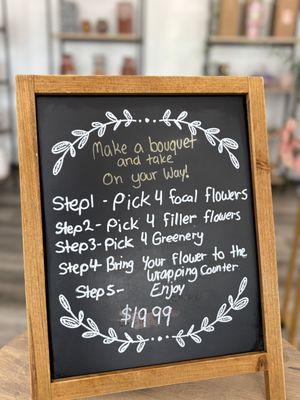 Make a bouquet
and take
On your Way!
Step1 - Pick 4 focal flowers
Step2 - Pick 4 filler flowers
Step3 - Pick 4 Greenery
Step4 Bring Your Flower to the
Wrapping Counter
Step5 - Enjoy
$19.99